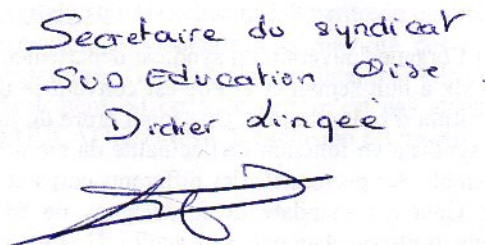 Secretaire du syndicat
SUD Education Oise
Didier Lingée